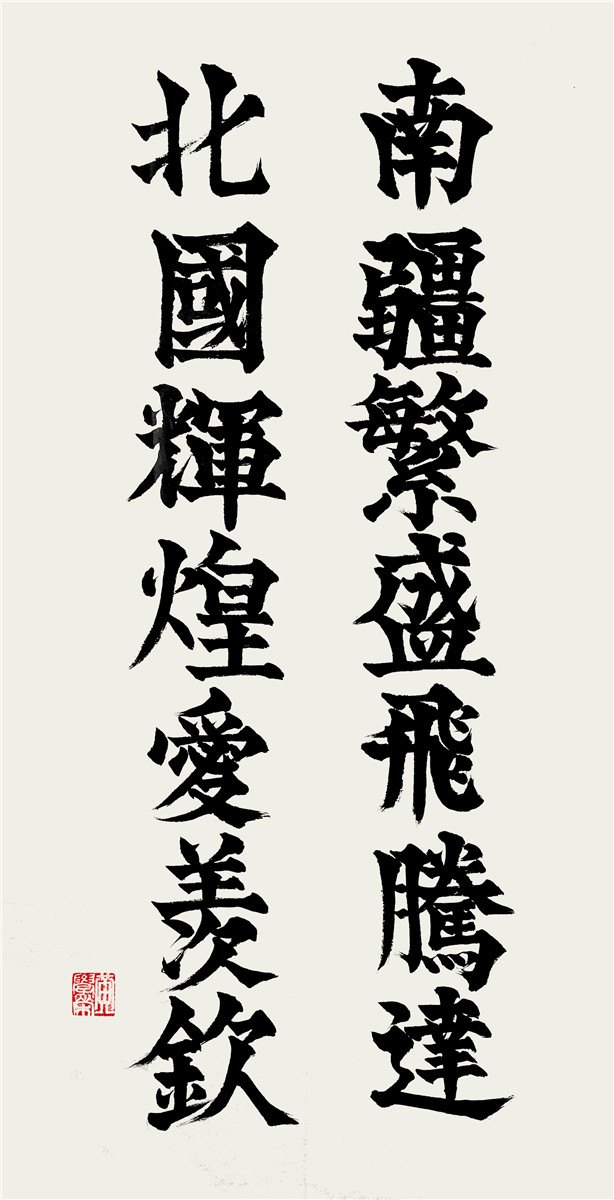 南疆繁盛飛騰達
北國輝煌愛羨欽